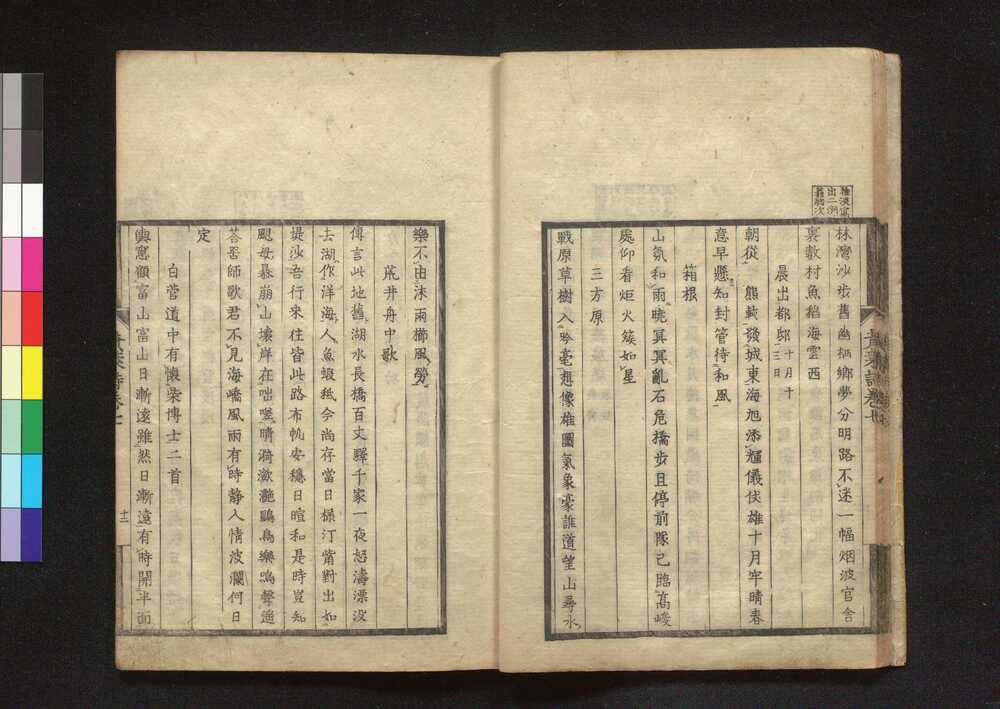 林灣沙步舊幽栖鄉夢分明路不迷一幅烟波官舍
裏數村魚稻海雲西
晨出都邸十月十三日
朝從 熊軾發城東海旭添輝儀仗雄十月牢晴春
意早懸知封管待和風
箱根
山氛和雨曉冥冥亂石危橋步且停前隊已臨高峻
處仰看炬火簇如星
三方原
戰原草樹入吟毫想像雄圖氣象豪誰道望山尋水
樂不由沐雨櫛風勞
荒井舟中歌
傳言此地舊湖水長橋百丈驛千家一夜怒濤漂沒
去湖作洋海人魚蝦秪今尚存當日樣汀觜對出如
堤沙吾行來往皆此路布帆安穩日暄和是時豈知
颶母暴崩山壞岸在咄嗟晴漪瀲灧鷗鳥樂鳴聲遥
荅舌師歌君不見海嶠風雨有時靜人情波瀾何日
定
白菅道中有懷柴博士二首
輿窻顧富山富山日漸遠雖然日漸遠有時開半面
十二